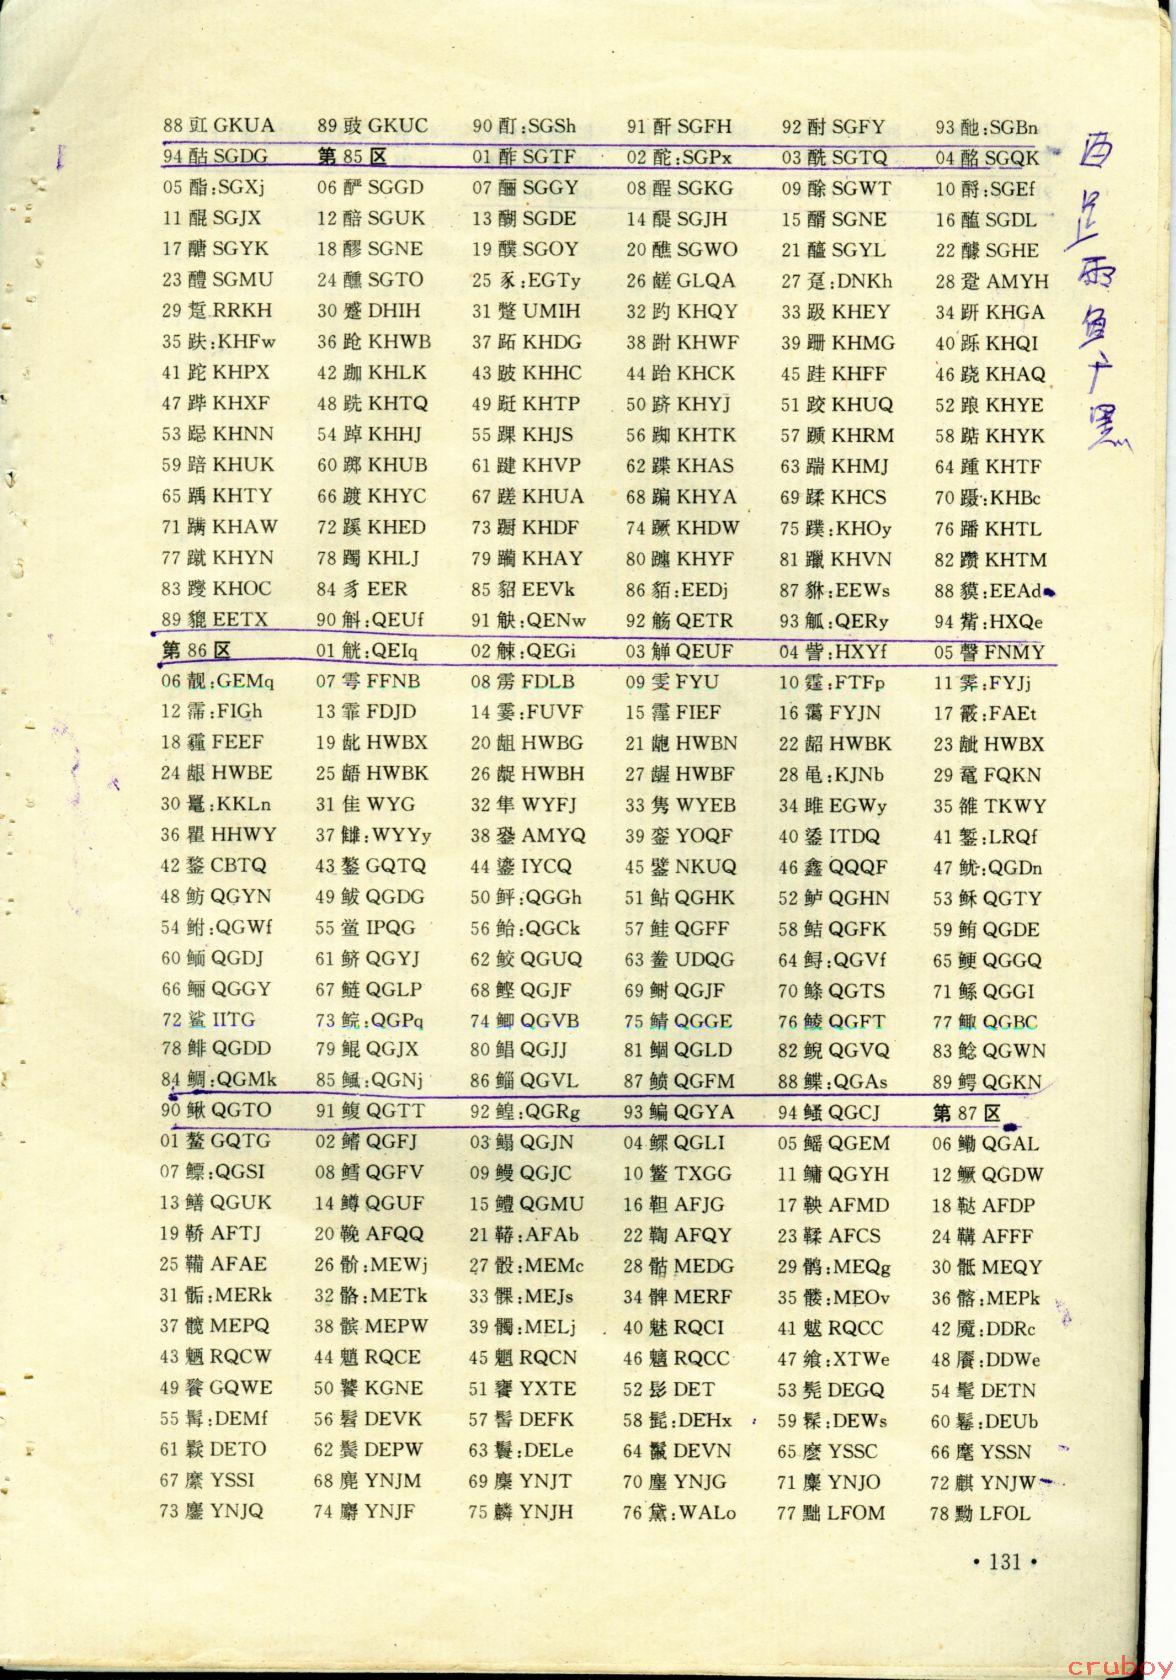 88 豇 GKUA 89 豉 GKUC 90 酊:SGSh 91 酐 SGFH 92 酎 SGFY 93 酏:SGBn
94 酤 SGDG 第 85 区 01 酢 SGTF 02 酡:SGPx 03 酰 SGTQ 04 酩 SGQK
05 酯:SGXj 06 酽 SGGD 07 酾 SGGY 08 酲 SGKG 09 酴 SGWT 10 酹:SGEf
11 醌 SGJX 12 醅 SGUK 13 醐 SGDE 14 醍 SGJH 15 醑 SGNE 16 醢 SGDL
17 醣 SGYK 18 醪 SGNE 19 醭 SGOY 20 醮 SGWO 21 醯 SGYL 22 醵 SGHE
23 醴 SGMU 24 醺 SGTO 25 豕:EGTy 26 鹾 GLQA 27 趸:DNKh 28 跫 AMYH
29 踅 RRKH 30 蹙 DHIH 31 蹩 UMIH 32 趵 KHQY 33 趿 KHEY 34 趼 KHGA
35 趺:KHFw 36 跄 KHWB 37 跖 KHDG 38 跗 KHWF 39 跚 KHMG 40 跞 KHQI
41 跎 KHPX 42 跏 KHLK 43 跛 KHHC 44 跆 KHCK 45 跬 KHFF 46 跷 KHAQ
47 跸 KHXF 48 跣 KHTQ 49 跹 KHTP 50 跻 KHYJ 51 跤 KHUQ 52 踉 KHYE
53 跽 KHNN 54 踔 KHHJ 55 踝 KHJS 56 踟 KHTK 57 踬 KHRM 58 踮 KHYK
59 踣 KHUK 60 踯 KHUB 61 踺 KHVP 62 蹀 KHAS 63 踹 KHMJ 64 踵 KHTF
65 踽 KHTY 66 踱 KHYC 67 蹉 KHUA 68 蹁 KHYA 69 蹂 KHCS 70 蹑:KHBc
71 蹒 KHAW 72 蹊 KHED 73 蹰 KHDF 74 蹶 KHDW 75 蹼:KHOy 76 蹯 KHTL
77 蹴 KHYN 78 躅 KHLJ 79 躏 KHAY 80 躔 KHYF 81 躐 KHVN 82 躜 KHTM
83 躞 KHOC 84 豸 EER 85 貂 EEVk 86 貊:EEDj 87 貅:EEWs 88 貘:EEAd
89 貔 EETX 90 斛:QEUf 91 觖:QENw 92 觞 QETR 93 觚:QERy 94 觜:HXQe
第 86 区 01 觥:QEIq 02 觫:QEGi 03 觯 QEUF 04 訾:HXYf 05 謦 FNMY
06 靓:GEMq 07 雩 FFNB 08 雳 FDLB 09 雯 FYU 10 霆:FTFp 11 霁:FYJj
12 霈:FIGh 13 霏 FDJD 14 霎:FUVF 15 霪 FIEF 16 霭 FYJN 17 霰:FAEt
18 霾 FEEF 19 龀 HWBX 20 龃 HWBG 21 龅 HWBN 22 龆 HWBK 23 龇 HWBX
24 龈 HWBE 25 龉 HWBK 26 龊 HWBH 27 龌 HWBF 28 黾:KJNb 29 鼋 FQKN
30 鼍:KKLn 31 隹 WYG 32 隼 WYFJ 33 隽 WYEB 34 雎 EGWy 35 雒 TKWY
36 瞿 HHWY 37 雠:WYYy 38 銎 AMYQ 39 銮 YOQF 40 鋈 ITDQ 41 錾:LRQf
42 鍪 CBTQ 43 鏊 GQTQ 44 鎏 IYCQ 45 鐾 NKUQ 46 鑫 QQQF 47 鱿:QGDn
48 鲂 QGYN 49 鲅 QGDG 50 鲆:QGGh 51 鲇 QGHK 52 鲈 QGHN 53 稣 QGTY
54 鲋:QGWf 55 鲎 IPQG 56 鲐:QGCk 57 鲑 QGFF 58 鲒 QGFK 59 鲔 QGDE
60 鲕 QGDJ 61 鲚 QGYJ 62 鲛 QGUQ 63 鲞 UDQG 64 鲟:QGVf 65 鲠 QGGQ
66 鲡 QGGY 67 鲢 QGLP 68 鲣 QGJF 69 鲥 QGJF 70 鲦 QGTS 71 鲧 QGGI
72 鲨 IITG 73 鲩:QGPq 74 鲫 QGVB 75 鲭 QGGE 76 鲮 QGFT 77 鲰 QGBC
78 鲱 QGDD 79 鲲 QGJX 80 鲳 QGJJ 81 鲴 QGLD 82 鲵 QGVQ 83 鲶 QGWN
84 鲷:QGMk 85 鲺:QGNj 86 鲻 QGVL 87 鲼 QGFM 88 鲽:QGAs 89 鳄 QGKN
90 鳅 QGTO 91 鳆 QGTT 92 鳇:QGRg 93 鳊 QGYA 94 鳋 QGCJ 第 87 区
01 鳌 GQTG 02 鳍 QGFJ 03 鳎 QGJN 04 鳏 QGLI 05 鳐 QGEM 06 鳓 QGAL
07 鳔:QGSI 08 鳕 QGFV 09 鳗 QGJC 10 鳘 TXGG 11 鳙 QGYH 12 鳜 QGDW
13 鳝 QGUK 14 鳟 QGUF 15 鳢 QGMU 16 靼 AFJG 17 鞅 AFMD 18 鞑 AFDP
19 鞒 AFTJ 20 鞔 AFQQ 21 鞯:AFAb 22 鞫 AFQY 23 鞣 AFCS 24 鞲 AFFF
25 鞴 AFAE 26 骱:MEWj 27 骰:MEMc 28 骷 MEDG 29 鹘:MEQg 30 骶 MEQY
31 骺:MERk 32 骼:METk 33 髁:MEJs 34 髀 MERF 35 髅:MEOv 36 髂:MEPk
37 髋 MEPQ 38 髌 MEPW 39 髑:MELj 40 魅 RQCI 41 魃 RQCC 42 魇:DDRc
43 魉 RQCW 44 魈 RQCE 45 魍 RQCN 46 魑 RQCC 47 飨:XTWe 48 餍:DDWe
49 餮 GQWE 50 饕 KGNE 51 饔 YXTE 52 髟 DET 53 髡 DEGQ 54 髦 DETN
55 髯:DEMf 56 髫 DEVK 57 髻 DEFK 58 髭:DEHx 59 髹:DEWs 60 鬈:DEUb
61 鬏 DETO 62 鬓 DEPW 63 鬟:DELe 64 鬣 DEVN 65 麽 YSSC 66 麾 YSSN
67 縻 YSSI 68 麂 YNJM 69 麇 YNJT 70 麈 YNJG 71 麋 YNJO 72 麒 YNJW
73 鏖 YNJQ 74 麝 YNJF 75 麟 YNJH 76 黛:WALo 77 黜 LFOM 78 黝 LFOL
·131·
西足雨鱼广黑
cruboy